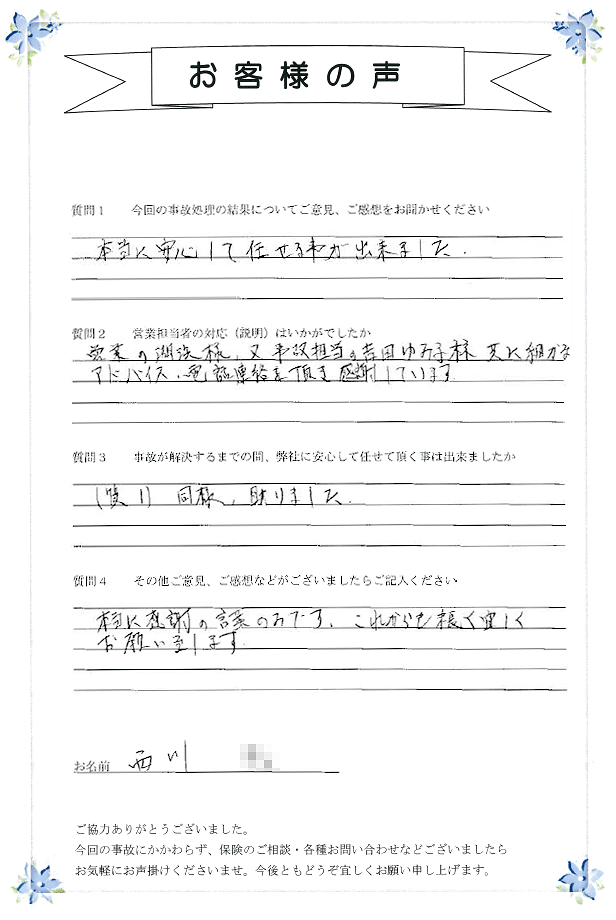 お客様の声
質問1 今回の事故処理の結果についてご意見、ご感想をお聞かせください
本当に安心して任せる事が出来ました.
質問2 営業担当者の対応（説明）はいかがでしたか
営業の 様, 又 事故担当の吉田ゆみ子様 共に細かな
アドバイス・電話連絡を頂き感謝しています
質問3 事故が解決するまでの間、弊社に安心して任せて頂く事は出来ましたか
(質1) 同様, 助りました.
質問4 その他ご意見、ご感想などがございましたらご記入ください
本当に感謝の言葉のみです. これからも 宜しく
お願い致します.
お名前 西川
ご協力ありがとうございました。
今回の事故にかかわらず、保険のご相談・各種お問い合わせなどございましたら
お気軽にお声掛けくださいませ。今後ともどうぞ宜しくお願い申し上げます。